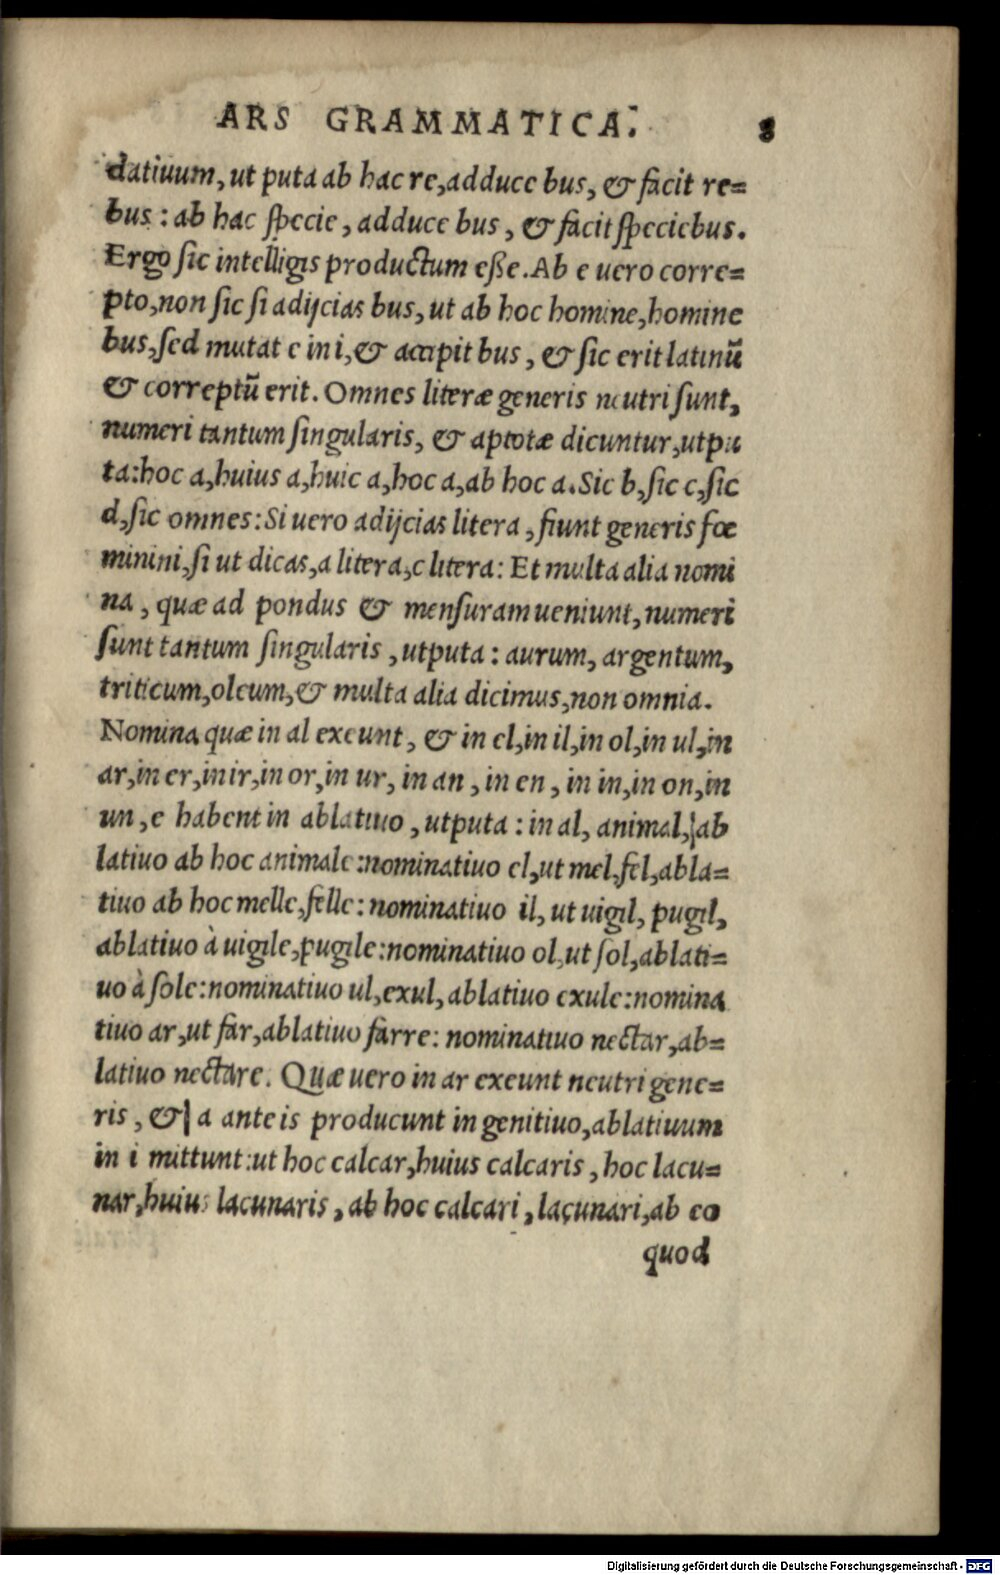 ARS GRAMMATICA. 8
datiuum, ut puta ab hac re, adduce bus, & facit re=
bus: ab hac ſpecie, adduce bus, & facit ſpeciebus.
Ergo ſic intelligis productum eſſe. Ab e uero corre=
pto, non ſic ſi adijcias bus, ut ab hoc homine, homine
bus, ſed mutat e in i, & accipit bus, & ſic erit latinū
& correptū erit. Omnes literæ generis neutri ſunt,
numeri tantum ſingularis, & aptotæ dicuntur, utpu
ta: hoc a, huius a, huic a, hoc a, ab hoc a. Sic b, ſic c, ſic
d, ſic omnes: Si uero adijcias litera, fiunt generis fœ
minini, ſi ut dicas, a litera, c litera: Et multa alia nomi
na, quæ ad pondus & menſuram ueniunt, numeri
ſunt tantum ſingularis, utputa: aurum, argentum,
triticum, oleum, & multa alia dicimus, non omnia.
Nomina quæ in al exeunt, & in el, in il, in ol, in ul, in
ar, in er, in ir, in or, in ur, in an, in en, in in, in on, in
un, e habent in ablatiuo, utputa: in al, animal, ab
latiuo ab hoc animale: nominatiuo el, ut mel, fel, abla=
tiuo ab hoc melle, felle: nominatiuo il, ut uigil, pugil,
ablatiuo à uigile, pugile: nominatiuo ol, ut ſol, ablati=
uo à ſole: nominatiuo ul, exul, ablatiuo exule: nomina
tiuo ar, ut far, ablatiuo farre: nominatiuo nectar, ab=
latiuo nectare. Quæ uero in ar exeunt neutri gene=
ris, & a ante is producunt in genitiuo, ablatiuum
in i mittunt: ut hoc calcar, huius calcaris, hoc lacu=
nar, huius lacunaris, ab hoc calcari, lacunari, ab eo
quod
Digitalisierung gefördert durch die Deutsche Forschungsgemeinschaft - DFG